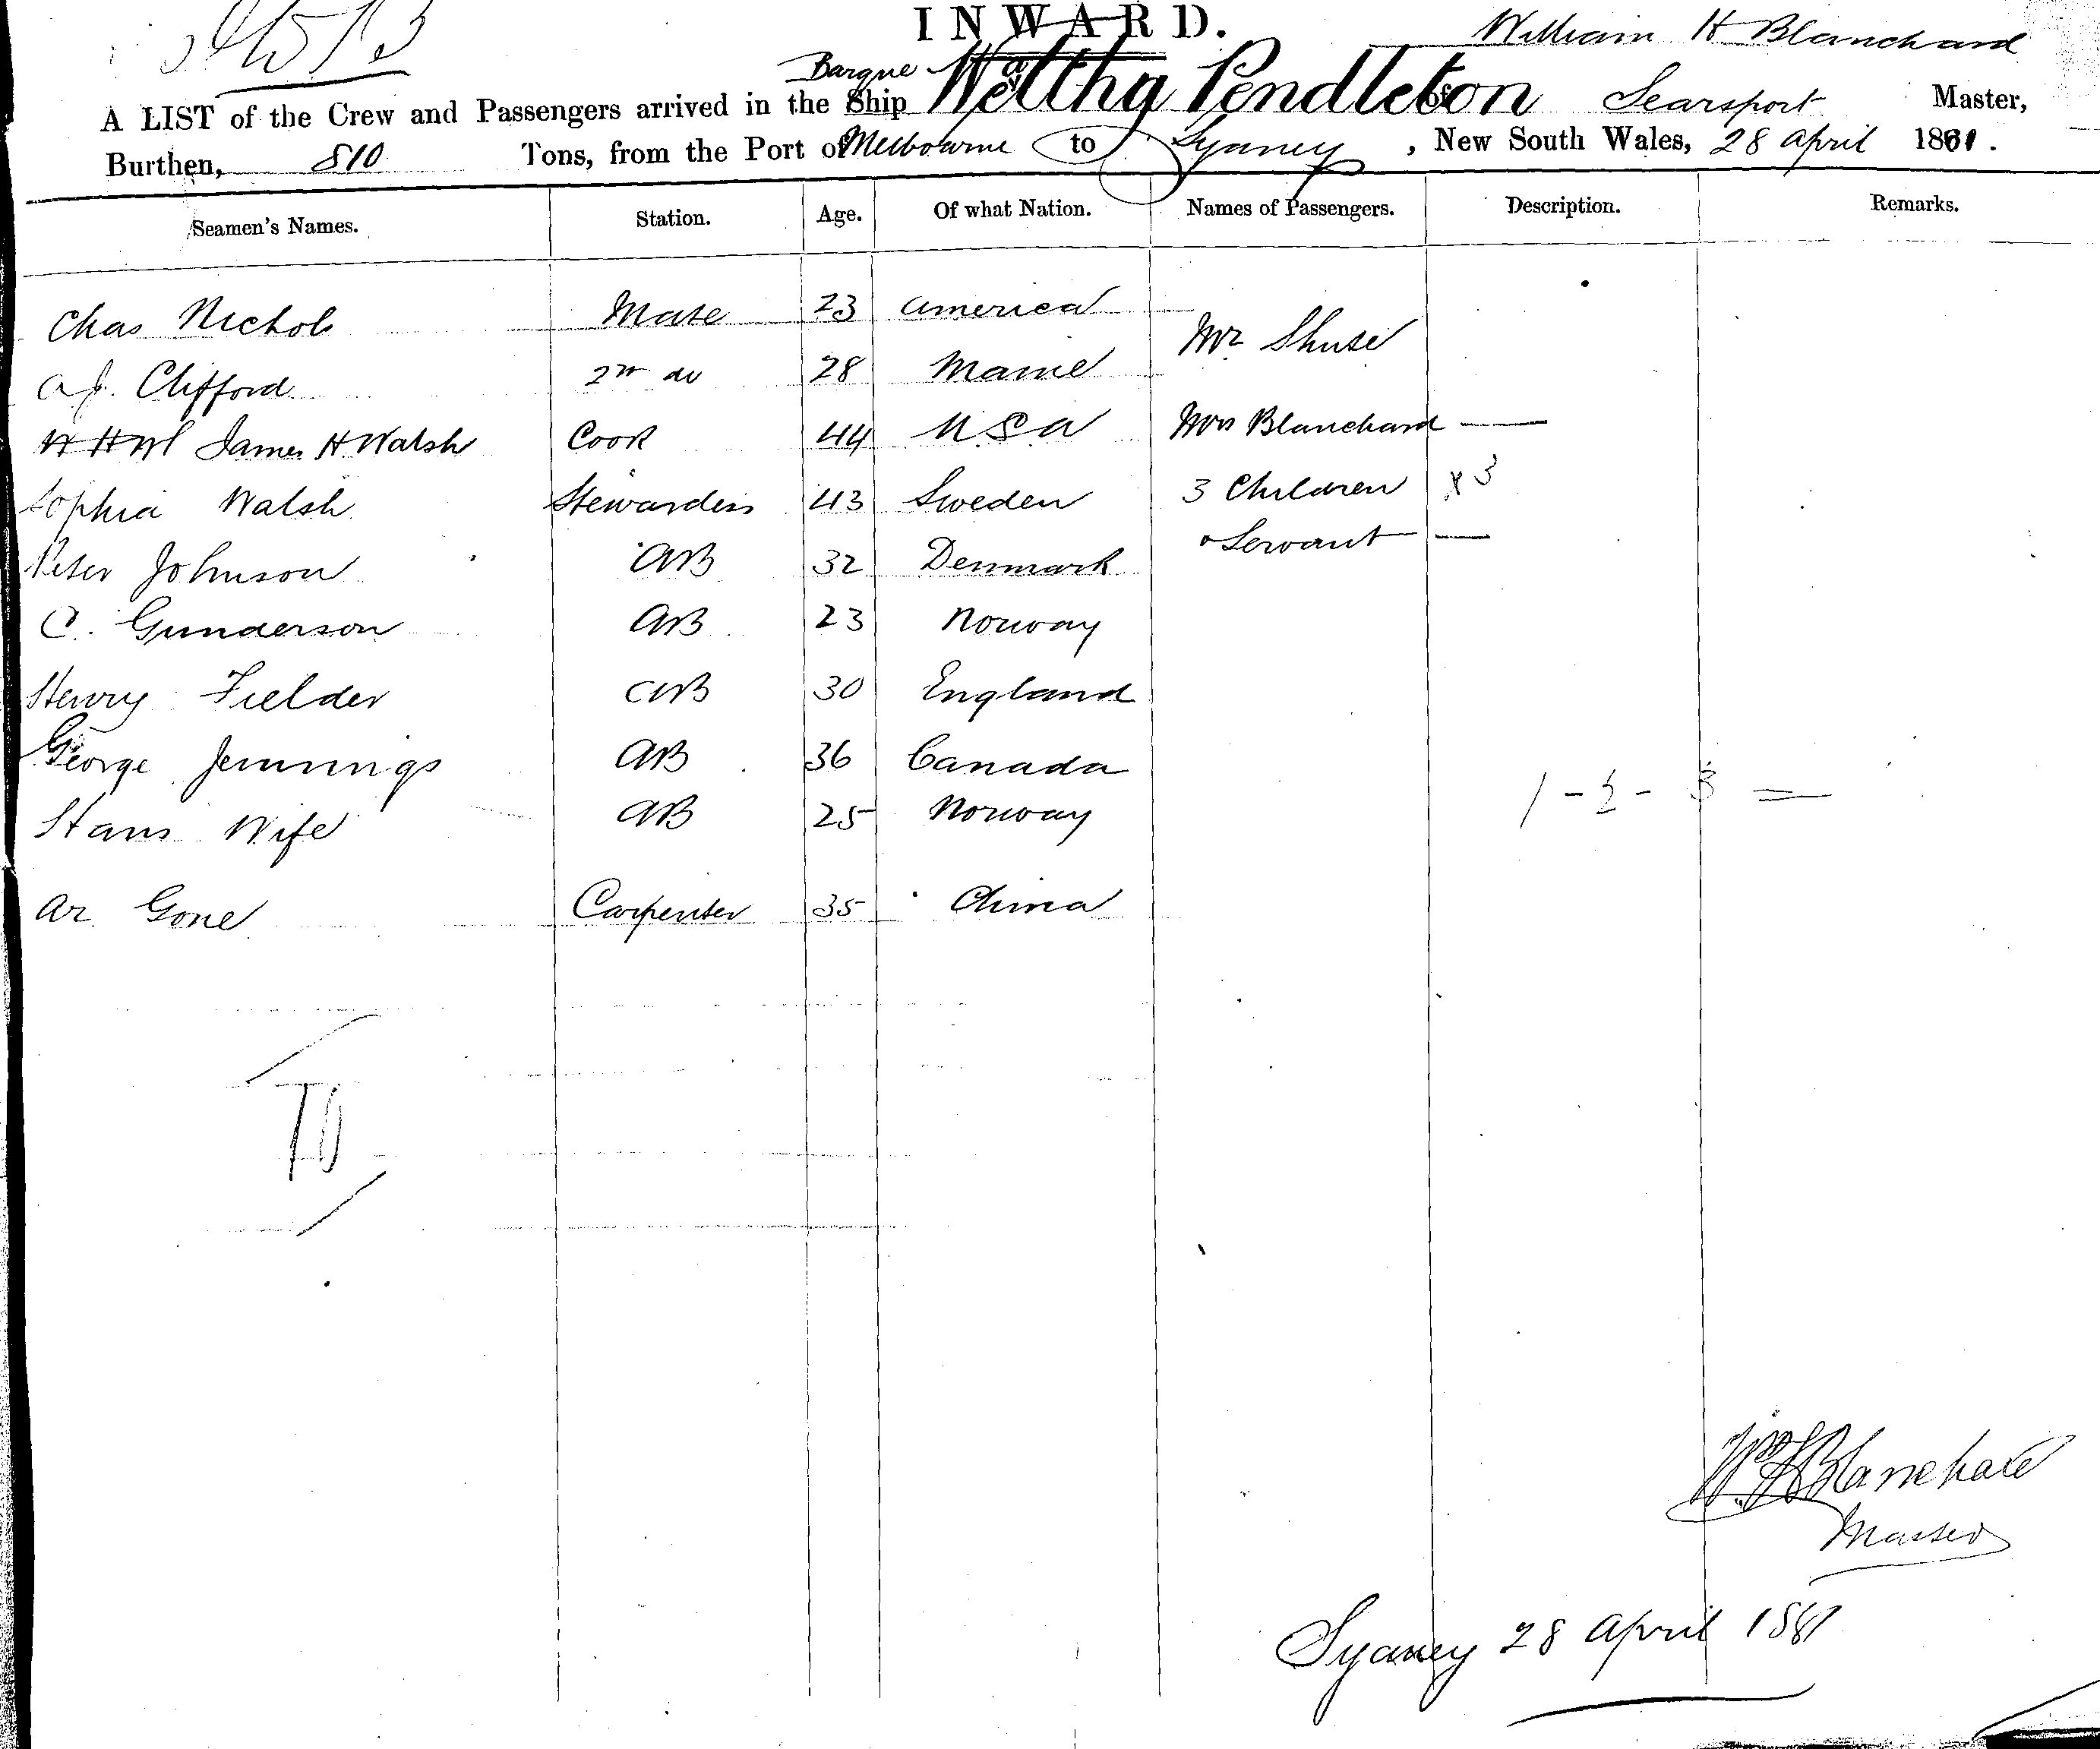 INWARD.
William H Blanchard
Barque
A LIST of the Crew and Passengers arrived in the Ship Wealthy Pendleton of Searsport Master,
Burthen, 810 Tons, from the Port of Melbourne to Sydney, New South Wales, 28 April 1881.
Seamen's Names. Station. Age. Of what Nation. Names of Passengers. Description. Remarks.
Chas Nichols Mate 23 America
Mr Shuse
A J. Clifford 2nd do 28 Maine
James H Walsh Cook 44 U S A Mrs Blanchard —
Sophia Walsh Stewardess 43 Sweden 3 Children x 3
Servant —
Peter Johnson AB 32 Denmark
C. Gunderson AB 23 Norway
Henry Fielder AB 30 England
George Jennings AB 36 Canada
1 - 2 - 3 =
Hans Wife AB 25 Norway
Ar Gone Carpenter 35 China
10
Wm H Blanchard
Master
Sydney 28 April 1881